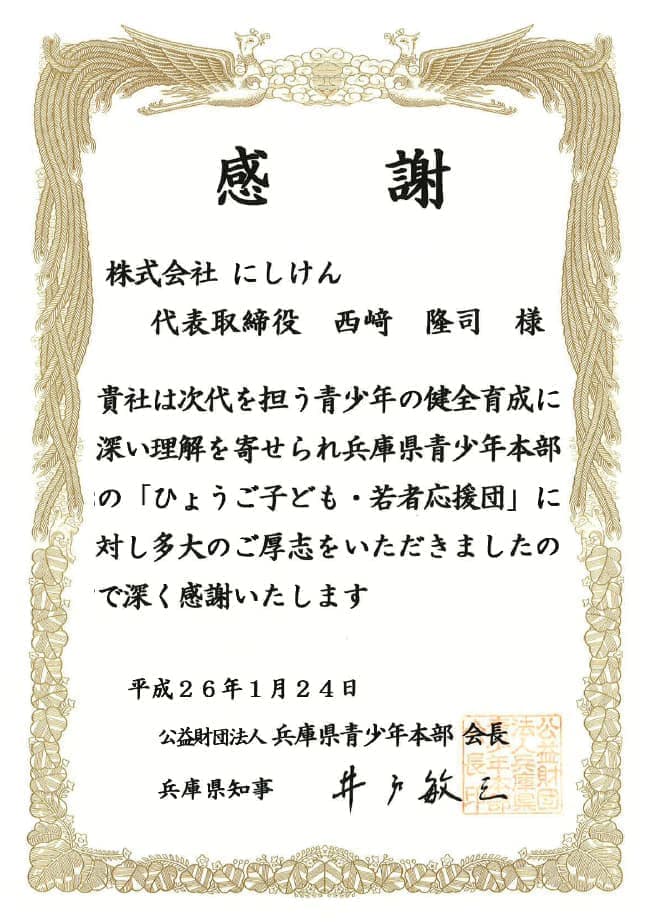 感謝
株式会社 にしけん
代表取締役 西﨑 隆司 様
貴社は次代を担う青少年の健全育成に
深い理解を寄せられ兵庫県青少年本部
の「ひょうご子ども・若者応援団」に
対し多大のご厚志をいただきましたの
で深く感謝いたします
平成26年1月24日
公益財団法人 兵庫県青少年本部 会長
兵庫県知事 井戸敏三
公益財団
法人兵庫県
青少年本部
会長印